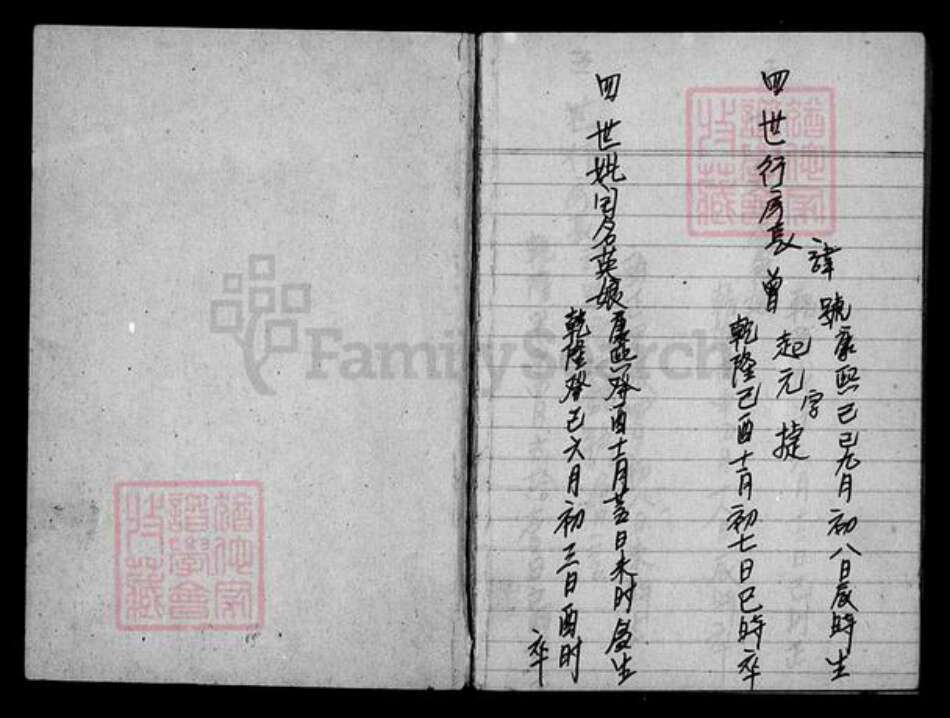 四世行房長曾起元字捷
諱
號康熙己巳九月初八日辰時生
乾隆己酉十二月初七日巳時卒
四世妣周名英娘
康熙癸酉十二月廿五日未時生
乾隆癸巳六月初三日酉时卒
FamilySearch
譜學會
收藏